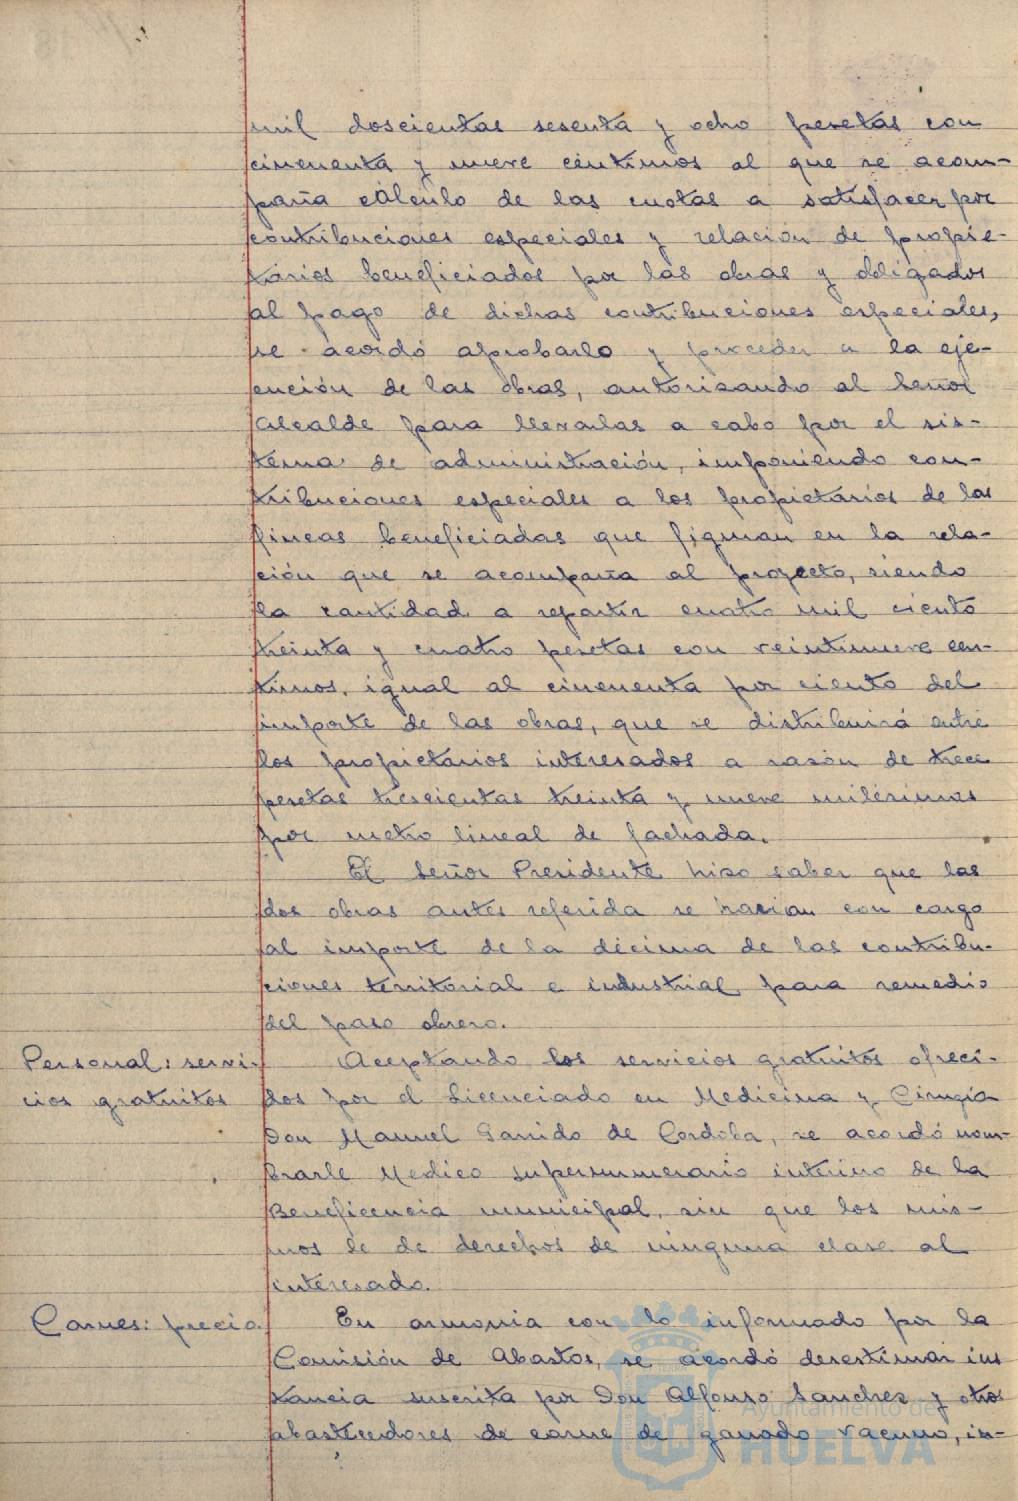 mil doscientas sesenta y ocho pesetas con
cincuenta y nueve céntimos al que se acom-
paña cálculo de las cuotas a satisfacer por
contribuciones especiales y relación de propie-
tarios beneficiados por las obras y obligados
al pago de dichas contribuciones especiales,
se acordó aprobarlo y proceder a la eje-
cución de las obras, autorizando al Señor
Alcalde para llevarlas a cabo por el sis-
tema de administración, imponiendo con-
tribuciones especiales a los propietarios de las
fincas beneficiadas que figuran en la rela-
ción que se acompaña al proyecto, siendo
la cantidad a repartir cuatro mil ciento
treinta y cuatro pesetas con veintinueve cen-
timos, igual al cincuenta por ciento del
importe de las obras, que se distribuirá entre
los propietarios interesados a razón de trece
pesetas trescientas treinta y nueve milésimas
por metro lineal de fachada.
El Señor Presidente hizo saber que las
dos obras antes referida se harian con cargo
al importe de la décima de las contribu-
ciones territorial e industrial para remedio
del paro obrero.
Personal: servi-
cios gratuitos
Aceptando los servicios gratuitos ofreci-
dos por el Licenciado en Medicina y Cirugía
Don Manuel Garrido de Cordoba, se acordó nom-
brarle Medico supernumerario interino de la
Beneficencia municipal, sin que los mis-
mos le de derechos de ninguna clase al
interesado.
Carnes: precio.
En armonia con lo informado por la
Comisión de Abastos, se acordó desestimar ins
tancia suscrita por Don Alfonso Sanchez y otros
abastecedores de carne de ganado vacuno, in-
Ayuntamiento de
HUELVA